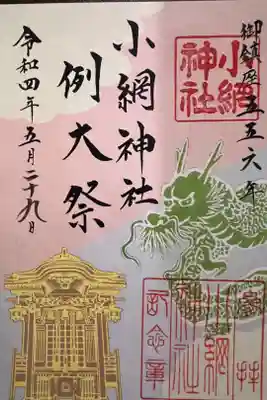 御鎮座五五六年
小網神社
例大祭
令和四年五月二十九日
小網
神社